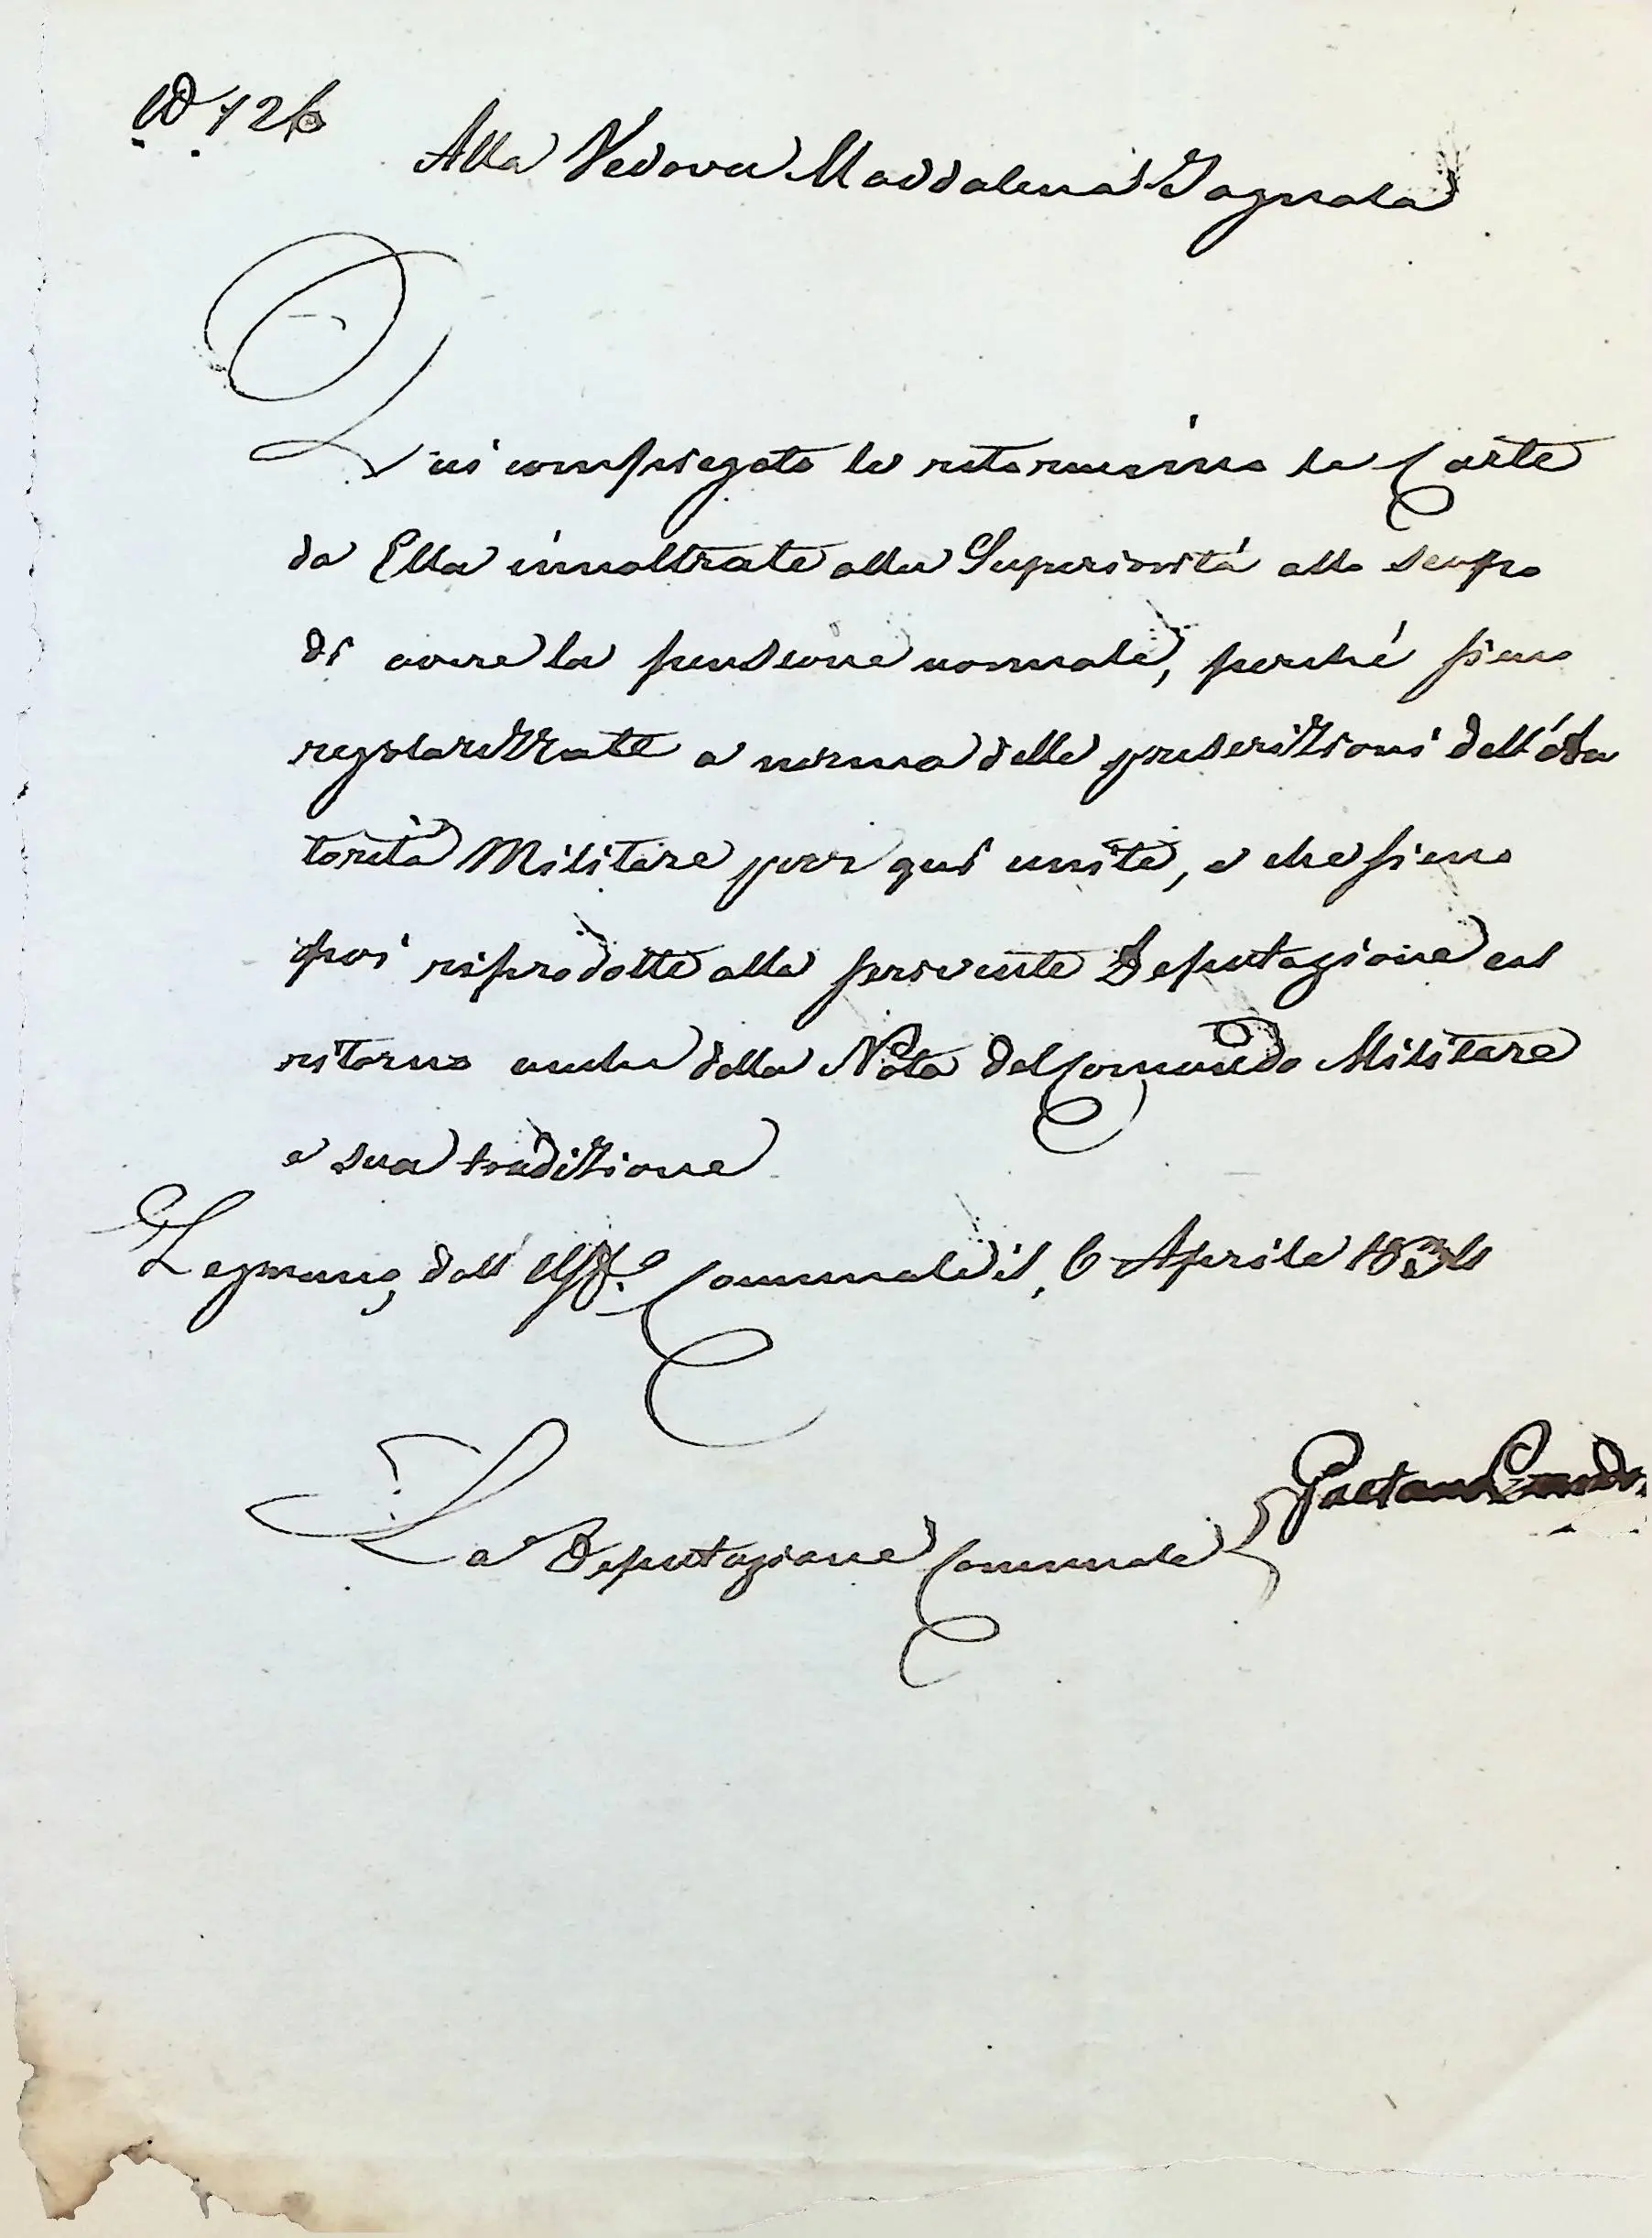 N° 726
Alla Vedova Maddalena Fagnola
Qui compiegato le ritorniamo le Carte
da Ella innoltrate alla Superiorità allo scopo
di avere la pensione normale, perché sieno
regolarizzate a norma delle prescrizioni dell'Au
torità Militare pur qui unite, e che sieno
poi riprodotte alla scrivente Deputazione col
ritorno anche della Nota del Comando Militare
e sua traduzione
Legnano, dall' Uff.o Comunale il, 6 Aprile 1834
La Deputazione Comunale
Gaetano